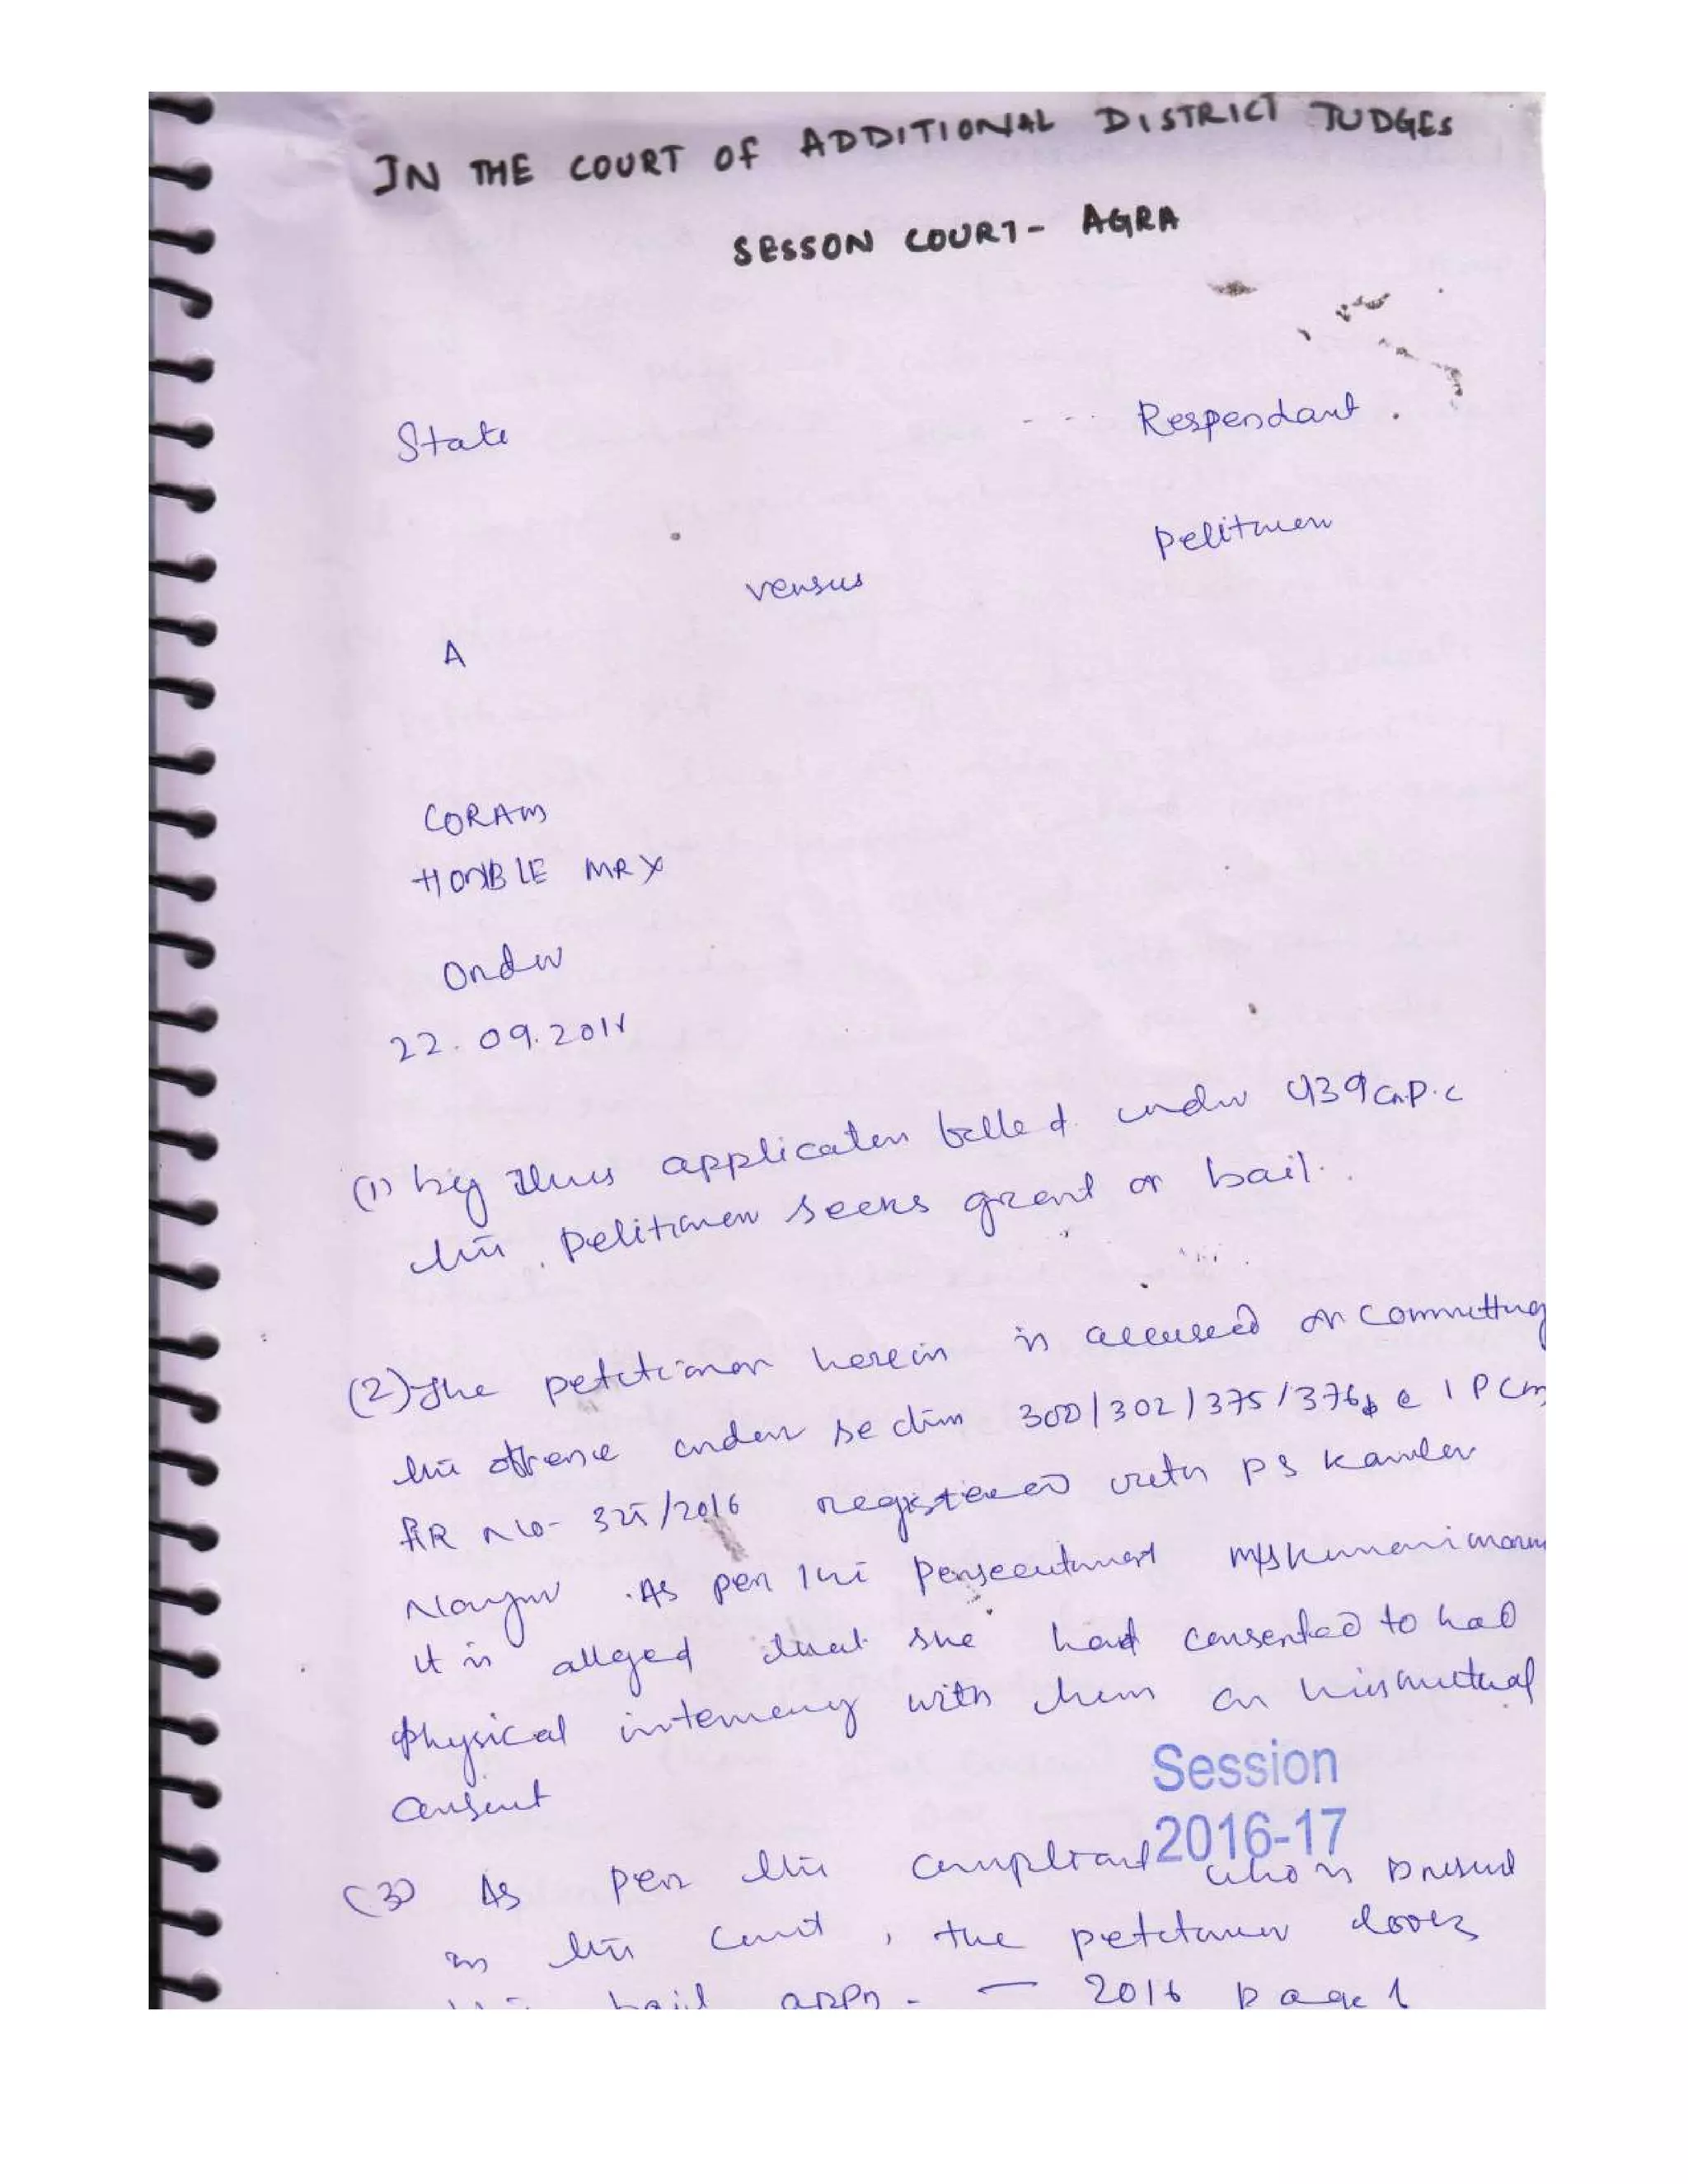 IN THE COURT OF ADDITIONAL DISTRICT JUDGES
SESSON COURT- AGRA
State -- Respendant.
Petitioner
versus
A
CORAM
HONBLE MR X
Order
22.09.201
(1) by this application under 439 Cr.P.C
the petitioner seeks grant of bail.
(2) The petitioner herein is accused of committing
the offense under section 300/302/375/376 IPC
FIR No- 325/2016 registered with PS
Nagar. As per the
it is alleged that she had consented to had
physical with them on his mutual
consent
Session
2016-17
(3) As per the complianant who is present
in the Court, the petitioner
bail appn. — 2016 page 1